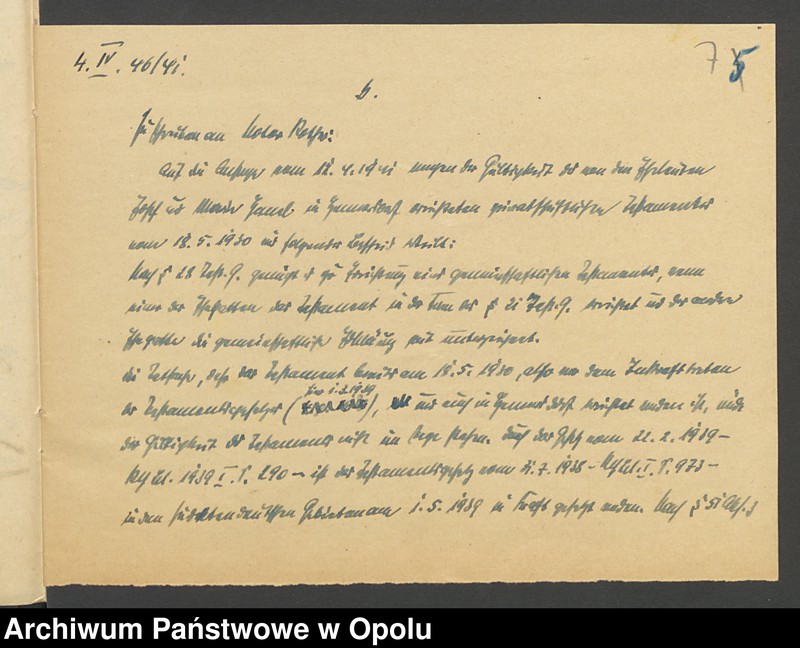 4. IV. 46/41.
7 5
b.
Zu schreiben an Notar
Auf die Anfrage vom 12.4.1941 wegen der Gültigkeit des von den Eheleuten
Josef und Maria in errichteten privatschriftlichen Testamentes
vom 18.5.1930 wird folgender Bescheid erteilt:
Nach § 28 Test.G. genügt es zur Errichtung eines gemeinschaftlichen Testamentes, wenn
einer der Ehegatten das Testament in der Form des § 21 Test.G. errichtet und der andere
Ehegatte die gemeinschaftliche Erklärung mit unterzeichnet.
Die Tatsache, dass das Testament bereits am 18.5.1930, also vor dem Inkrafttreten
des Testamentsgesetzes ( 1.5.1939 ), und auch in errichtet worden ist, würde
der Gültigkeit des Testaments nicht im Wege stehen. Durch das Gesetz vom 22.2.1939 –
RGBl. 1939 I. S. 290 – ist das Testamentsgesetz vom 31.7.1938 – RGBl. I. S. 973 –
in den sudetendeutschen Gebieten am 1.5.1939 in Kraft gesetzt worden. Nach § 51 Abs. 3
Archiwum Państwowe w Opolu